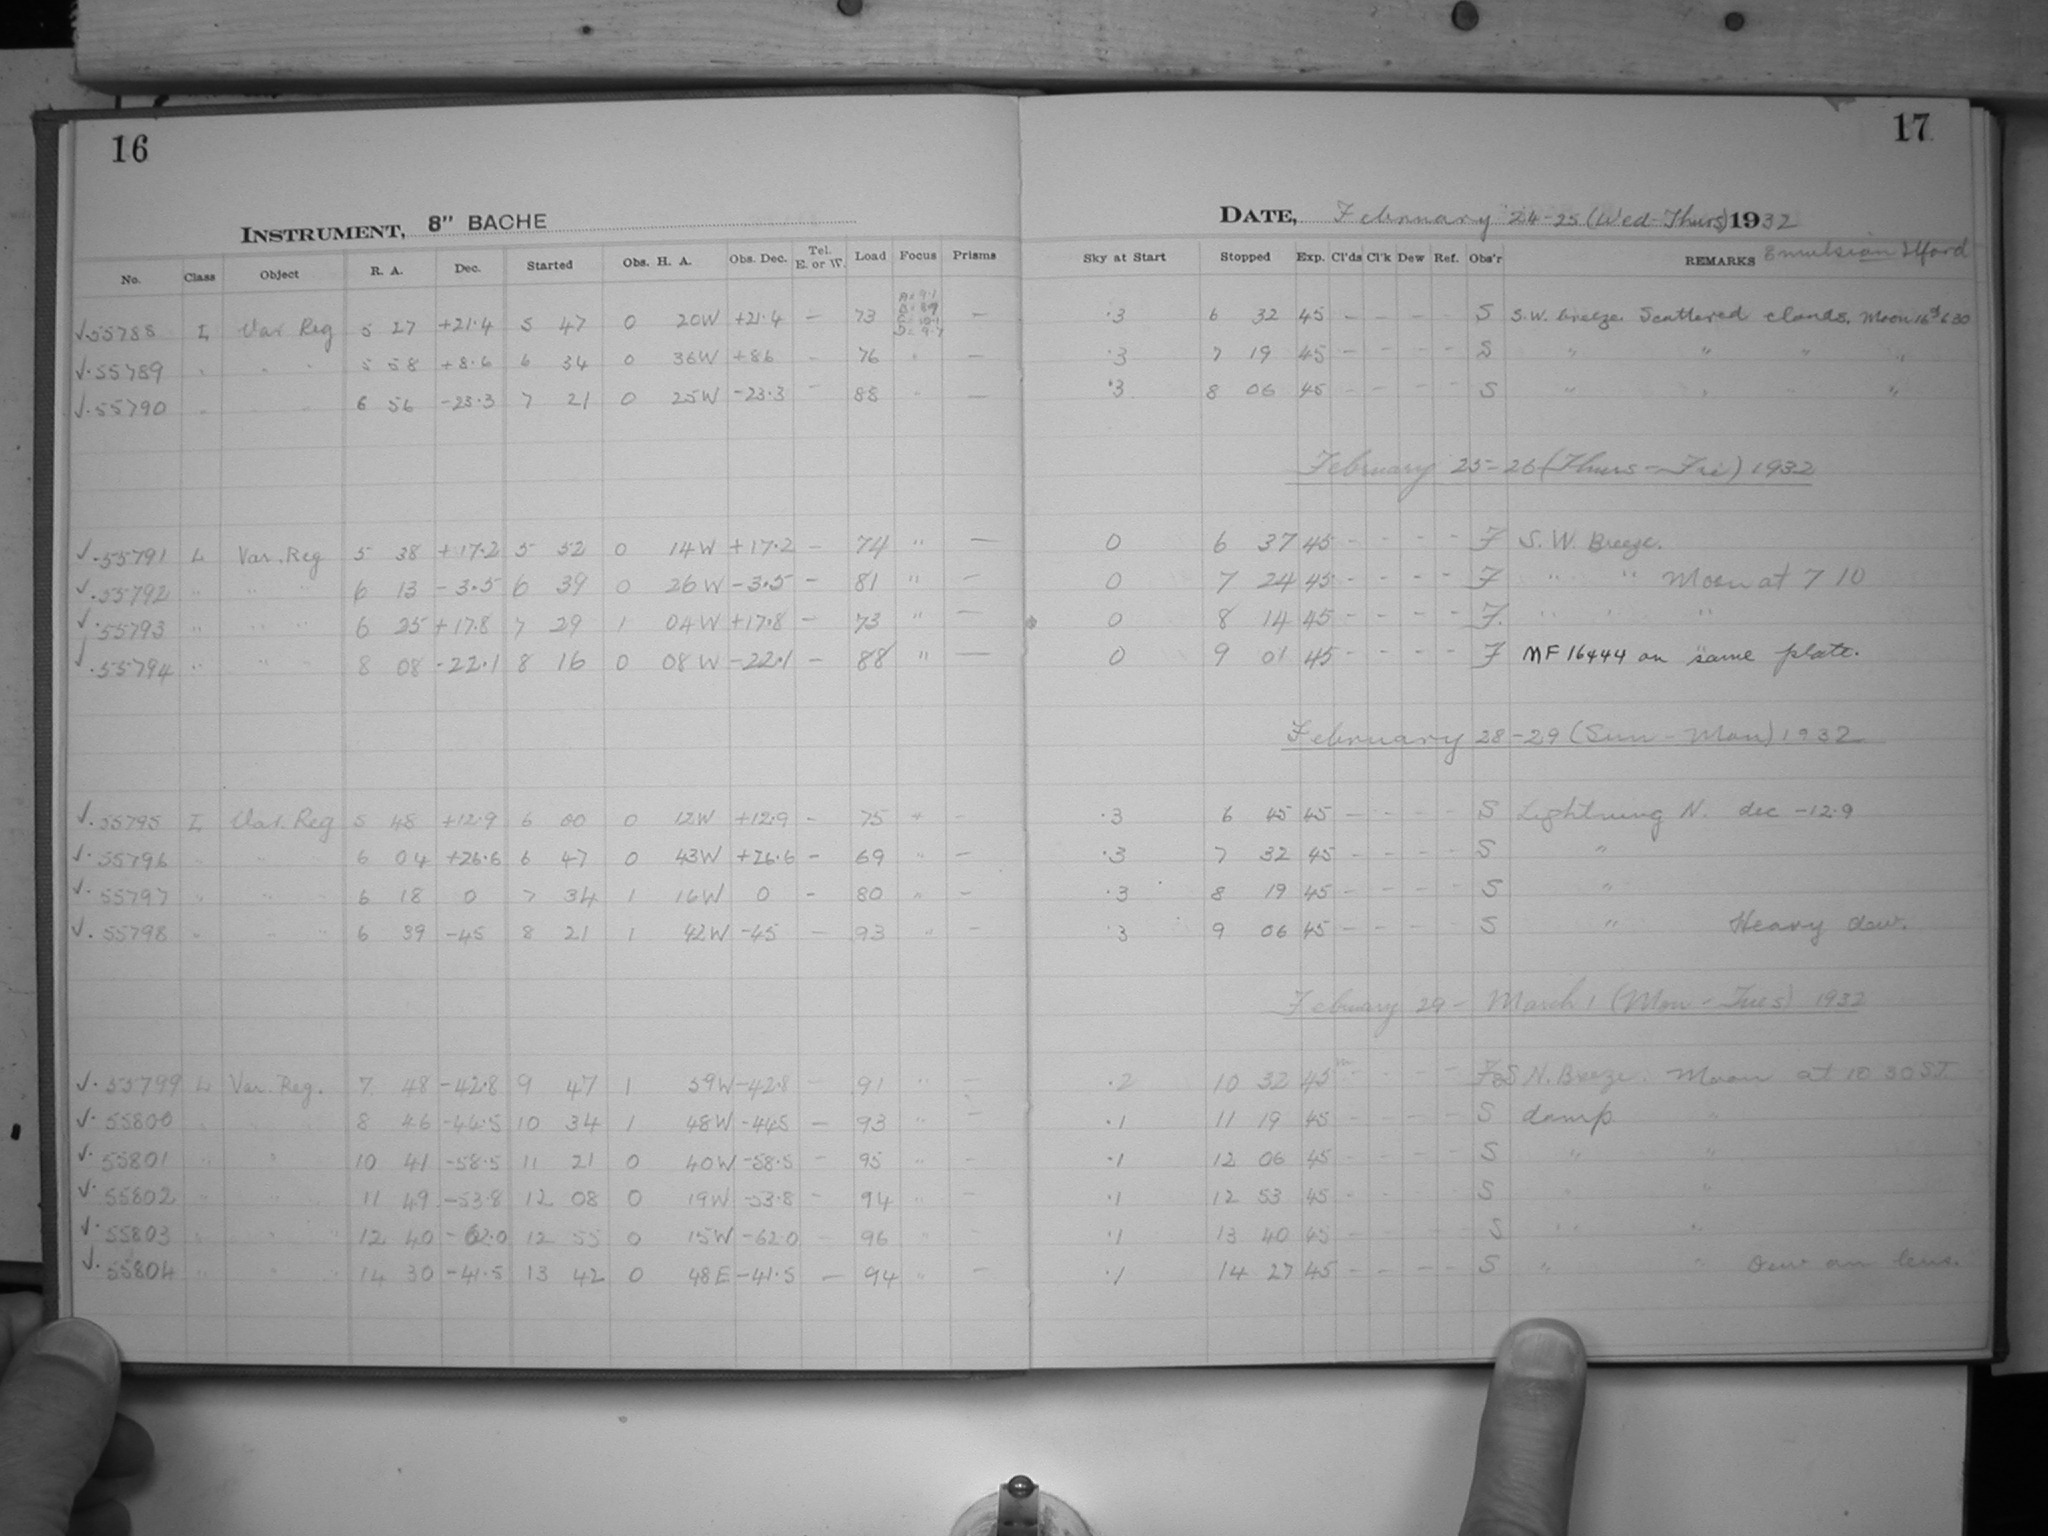 16
INSTRUMENT, 8" BACHE
No. Class Object R. A. Dec. Started Obs. H. A. Obs. Dec. Tel. E. or W. Load Focus Prisms
√.55788 L Var Reg 5 27 +21.4 5 47 0 20W +21.4 — 73 A=9.1 B=8.9 C=10.1 D=9.7 —
√.55789 " " " 5 58 +8.6 6 34 0 36W +8.6 - 76 " —
√.55790 " " 6 56 -23.3 7 21 0 25W -23.3 - 88 " —
√.55791 L Var. Reg 5 38 +17.2 5 52 0 14W +17.2 - 74 " —
√.55792 " " " 6 13 -3.5 6 39 0 26W -3.5 - 81 " —
√.55793 " " " 6 25 +17.8 7 29 1 04W +17.8 - 73 " —
√.55794 " " " 8 08 -22.1 8 16 0 08W -22.1 - 88 " —
√.55795 L Var. Reg 5 48 +12.9 6 00 0 12W +12.9 - 75 " -
√.55796 " " " 6 04 +26.6 6 47 0 43W +26.6 - 69 " —
√.55797 " " " 6 18 0 7 34 1 16W 0 - 80 " —
√.55798 " " " 6 39 -45 8 21 1 42W -45 - 93 " —
√.55799 L Var. Reg. 7 48 -42.8 9 47 1 59W -42.8 - 91 " —
√.55800 " " " 8 46 -44.5 10 34 1 48W -44.5 — 93 " —
√.55801 " " 10 41 -58.5 11 21 0 40W -58.5 - 95 " -
√.55802 " " " 11 49 -53.8 12 08 0 19W -53.8 - 94 " -
√.55803 " " " 12 40 -62.0 12 55 0 15W -62.0 - 96 "
√.55804 " " " 14 30 -41.5 13 42 0 48E -41.5 — 94 " —
17
DATE, February 24-25 (Wed-Thurs) 1932
Emulsion Ilford
Sky at Start Stopped Exp. Cl'ds Cl'k Dew Ref. Obs'r REMARKS
.3 6 32 45 - - - - S S.W. breeze. Scattered clouds. Moon 16d 6 30
.3 7 19 45 - - - - S " " " "
.3 8 06 45 - - - - S " " " "
February 25-26 (Thurs-Fri) 1932
0 6 37 45 - - - - F S.W. Breeze.
0 7 24 45 - - - - F " " Moon at 7 10
0 8 14 45 - - - - F. " " "
0 9 01 45 - - - - F MF 16444 on same plate.
February 28-29 (Sun-Mon) 1932
.3 6 45 45 - - - - S Lightning N. dec -12.9
.3 7 32 45 - - - - S "
.3 8 19 45 - - - - S "
.3 9 06 45 - - - - S " Heavy dew.
Febuary 29 - March 1 (Mon-Tues) 1932
.2 10 32 45 - - - F&S N. Breeze. Moon at 10 30 S.T.
.1 11 19 45 - - - - S damp "
.1 12 06 45 - - - - S " "
.1 12 53 45 - - - - S " "
.1 13 40 45 - - - - S " "
.1 14 27 45 - - - - S " " Dew on lens.